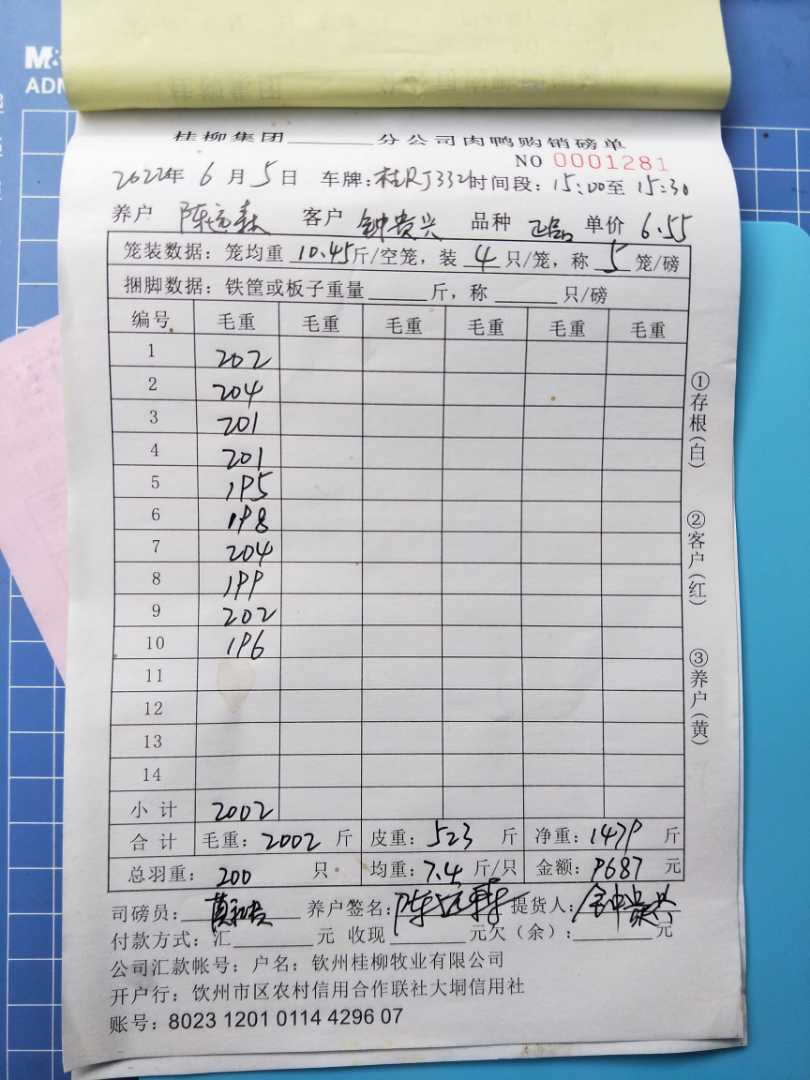 M&
ADM
桂柳集团______分公司肉鸭购销磅单
NO 0001281
2022年 6 月 5 日 车牌：桂RJ332 时间段：15:00至 15:30
养户 陈 客户 钟贵兴 品种 正品 单价 6.55
笼装数据：笼均重 10.45斤/空笼，装 4 只/笼，称 5 笼/磅
捆脚数据：铁筐或板子重量______斤，称______只/磅
编号 毛重 毛重 毛重 毛重 毛重 毛重
1 202
2 204
3 201
4 201
5 195
6 198
7 204
8 199
9 202
10 196
11
12
13
14
小计 2002
合计 毛重：2002 斤 皮重：523 斤 净重：1479 斤
总羽重：200 只 均重：7.4 斤/只 金额：9687 元
司磅员： 养户签名： 提货人：钟贵兴
付款方式：汇______元 收现______元欠（余）：______元
公司汇款帐号：户名：钦州桂柳牧业有限公司
开户行：饮州市区农村信用合作联社大垌信用社
账号：8023 1201 0114 4296 07
①存根（白）
②客户（红）
③养户（黄）